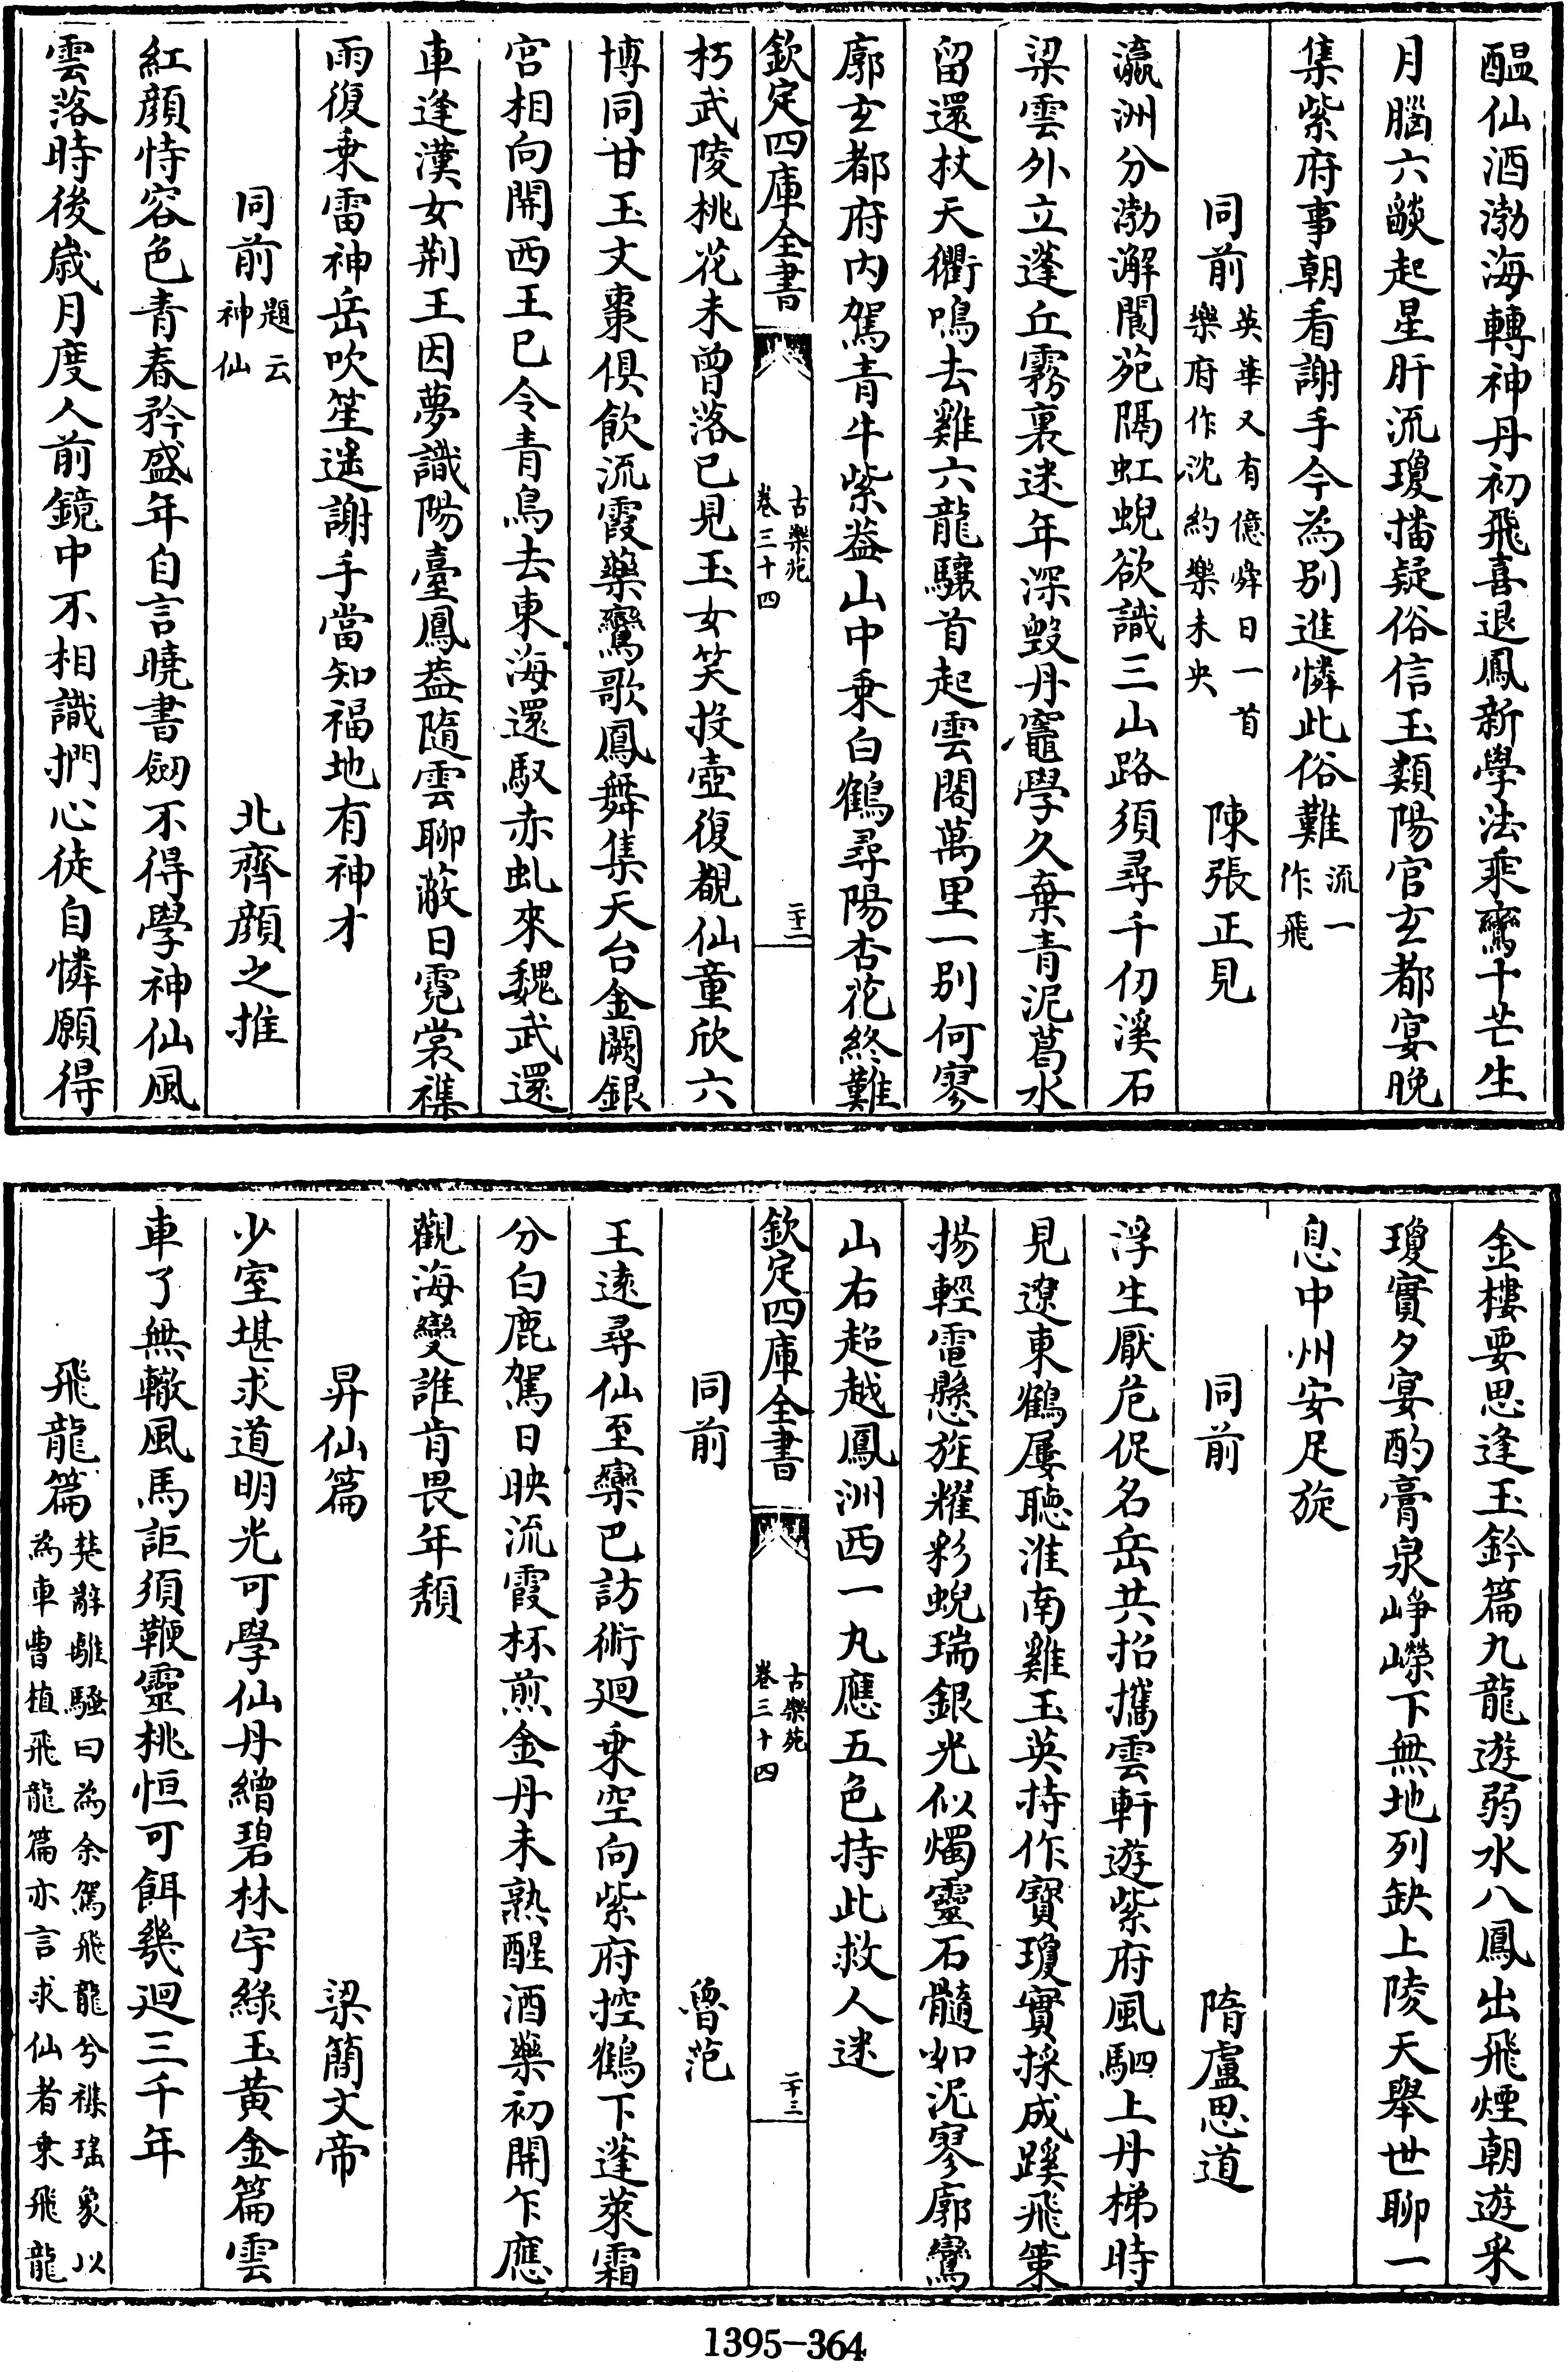 醖仙酒渤海轉神丹初飛喜退鳳新學法乘鸞十芒生
月腦六燄起星肝流瓊播疑俗信玉類陽官玄都宴晚
集紫府事朝看謝手今為别進憐此俗難流一作飛
同前英華又有億舜日一首樂府作沈約樂未央 陳張正見
瀛洲分渤澥閬苑隔虹蜺欲識三山路須尋千仞溪石
梁雲外立蓬丘霧裏迷年深毁丹竈學久棄青泥葛水
留還杖天衢鳴去雞六龍驤首起雲閣萬里一别何寥
廓玄都府内駕青牛紫葢山中乘白鶴尋陽杏花終難
欽定四庫全書 古樂苑卷三十四 二十二
朽武陵桃花未曾落已見玉女笑投壺復覩仙童欣六
博同甘玉文棗俱飲流霞藥鸞歌鳳舞集天台金闕銀
宫相向開西王已令青鳥去東海還馭赤虬來魏武還
車逢漢女荆王因夢識陽臺鳳葢隨雲聊蔽日霓裳襍
雨復乘雷神岳吹笙遥謝手當知福地有神才
同前題云神仙 北齊顔之推
紅顔恃容色青春矜盛年自言曉書劒不得學神仙風
雲落時後嵗月度人前鏡中不相識捫心徒自憐願得
金樓要思逢玉鈐篇九龍遊弱水八鳳出飛煙朝遊采
瓊實夕宴酌膏泉崢嶸下無地列缺上陵天舉世聊一
息中州安足旋
同前 隋盧思道
浮生厭危促名岳共招攜雲軒遊紫府風駟上丹梯時
見遼東鶴屢聴淮南雞玉英持作寳瓊實採成蹊飛策
揚輕電懸旌耀彩蜺瑞銀光似燭靈石髓如泥寥廓鸞
山右超越鳳洲西一丸應五色持此救人迷
欽定四庫全書 古樂苑卷三十四 二十三
同前 魯范
王逺尋仙至欒巴訪術廻乘空向紫府控鶴下蓬萊霜
分白鹿駕日映流霞杯煎金丹未熟醒酒藥初開乍應
觀海變誰肯畏年頽
昇仙篇 梁簡文帝
少室堪求道明光可學仙丹繒碧林宇緑玉黄金篇雲
車了無轍風馬詎須鞭靈桃恒可餌幾廻三千年
飛龍篇楚辭離騷曰為余駕飛龍兮襍瑶象以為車曹植飛龍篇亦言求仙者乘飛龍
1395-364